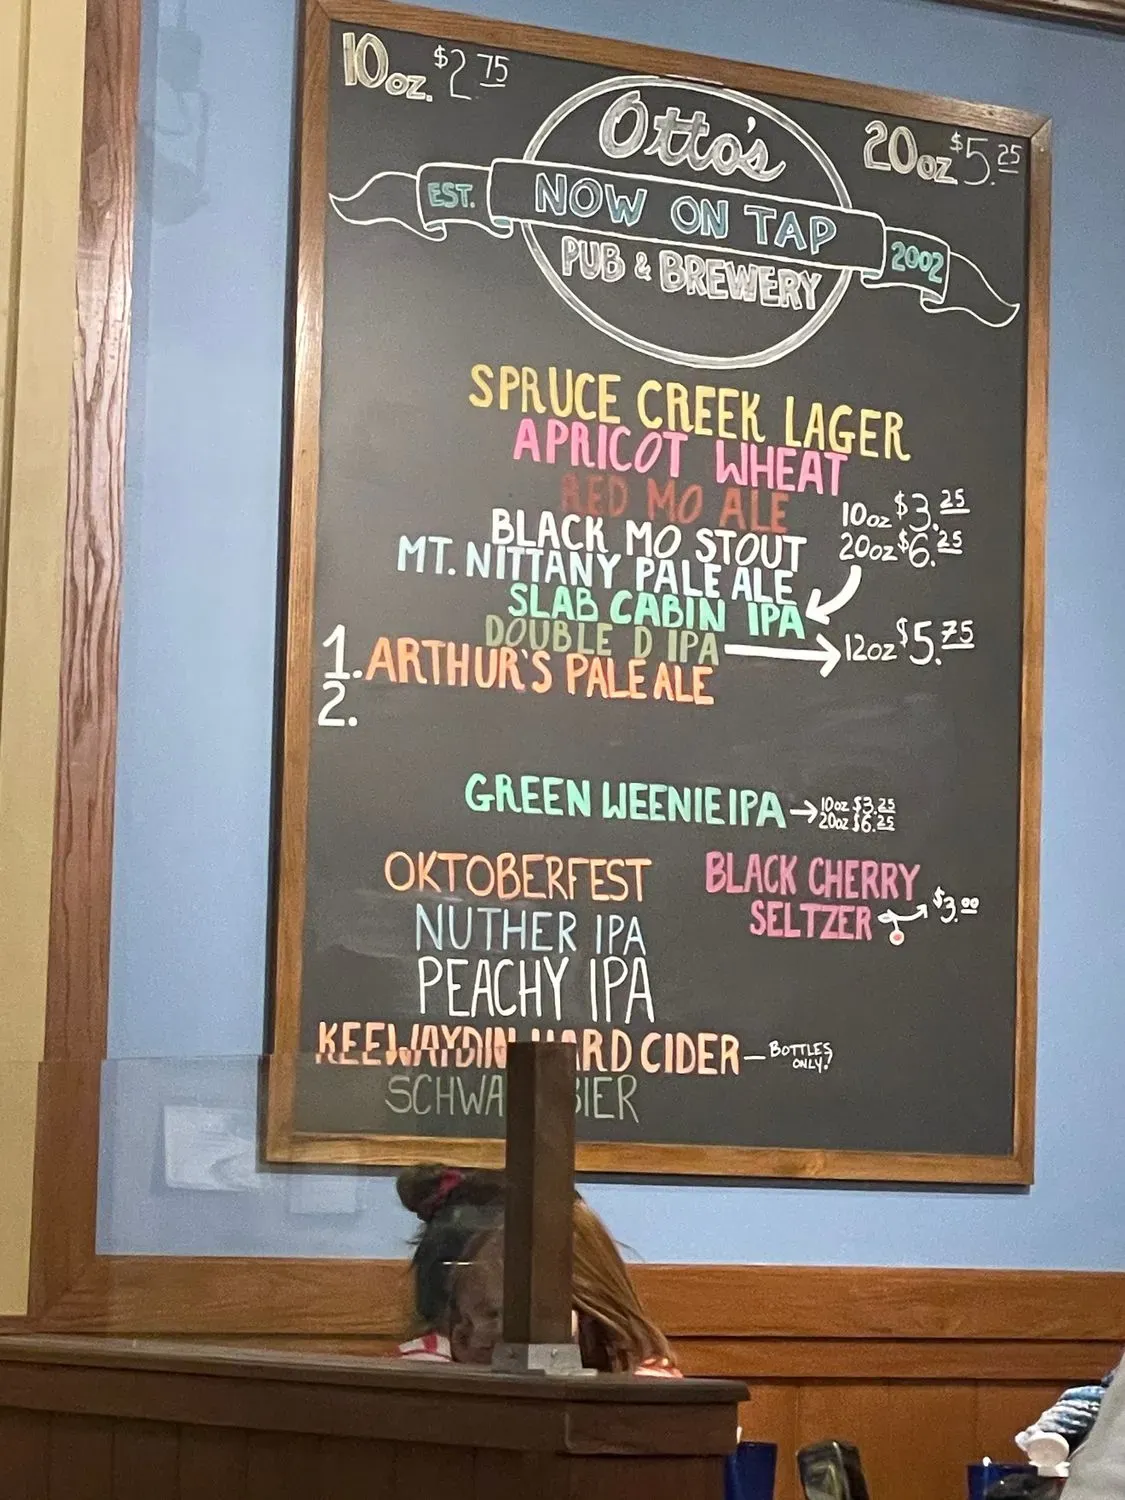 10oz. $2.75
Otto's
20oz $5.25
EST. NOW ON TAP 2002
PUB & BREWERY
SPRUCE CREEK LAGER
APRICOT WHEAT
RED MO ALE
10oz $3.25
BLACK MO STOUT
20oz $6.25
MT. NITTANY PALE ALE
SLAB CABIN IPA
DOUBLE D IPA
12oz $5.75
1. ARTHUR'S PALE ALE
2.
GREEN WEENIE IPA
10oz $3.25
20oz $6.25
OKTOBERFEST
BLACK CHERRY
SELTZER
$3.00
NUTHER IPA
PEACHY IPA
KEEWAYDIN HARD CIDER - BOTTLES
ONLY!